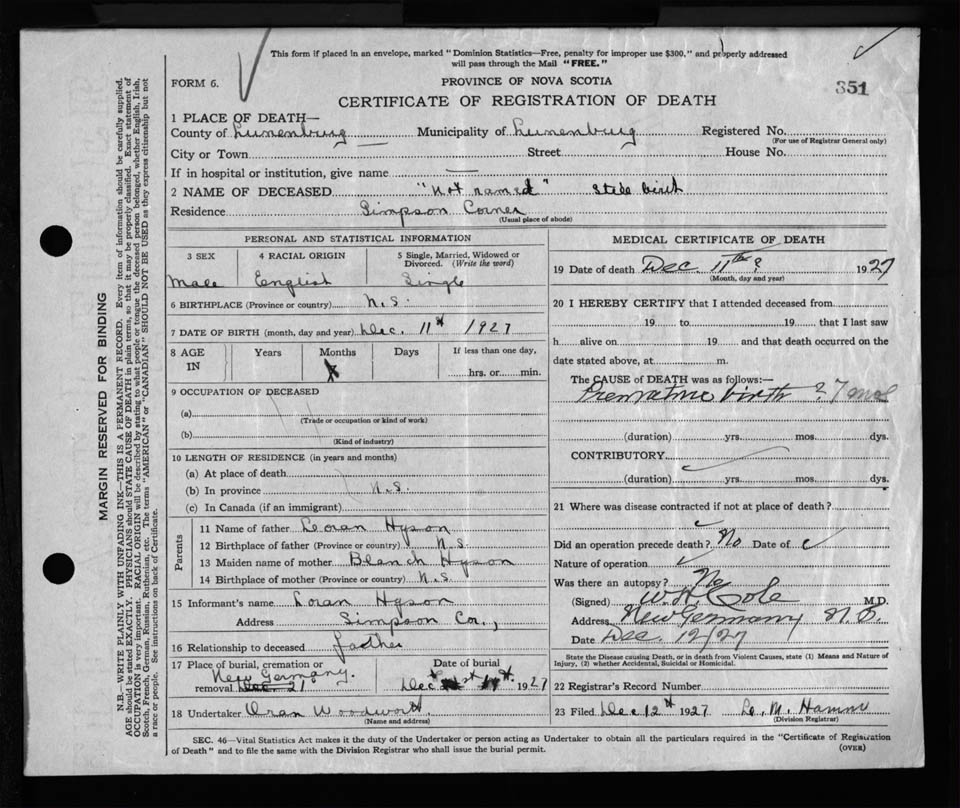 This form if placed in an envelope, marked "Dominion Statistics—Free, penalty for improper use $300," and properly addressed
will pass through the Mail "FREE."
FORM 6.
PROVINCE OF NOVA SCOTIA
351
CERTIFICATE OF REGISTRATION OF DEATH
1 PLACE OF DEATH—
County of Lunenburg Municipality of Lunenburg Registered No.
(For use of Registrar General only)
City or Town Street House No.
If in hospital or institution, give name —
2 NAME OF DECEASED "Not named" Stele birth
Residence Simpson Corner
(Usual place of abode)
PERSONAL AND STATISTICAL INFORMATION
3 SEX 4 RACIAL ORIGIN 5 Single, Married, Widowed or
Divorced. (Write the word)
Male English Single
6 BIRTHPLACE (Province or country) N.S.
7 DATE OF BIRTH (month, day and year) Dec. 11st 1927
8 AGE IN Years Months Days If less than one day,
hrs. or min.
9 OCCUPATION OF DECEASED
(a)
(Trade or occupation or kind of work)
(b)
(Kind of industry)
10 LENGTH OF RESIDENCE (in years and months)
(a) At place of death
(b) In province N.S.
(c) In Canada (if an immigrant)
Parents
11 Name of father Loran Hyson
12 Birthplace of father (Province or country) N.S.
13 Maiden name of mother Blanch Hyson
14 Birthplace of mother (Province or country) N.S.
15 Informant's name Loran Hyson
Address Simpson Cor.,
16 Relationship to deceased father
17 Place of burial, cremation or Date of burial
New Germany.
removal Dec 21 Dec 1927
18 Undertaker Oran Woodworth
(Name and address)
MEDICAL CERTIFICATE OF DEATH
19 Date of death Dec. 11th ? 1927
(Month, day and year)
20 I HEREBY CERTIFY that I attended deceased from
19 to 19 that I last saw
h alive on 19 and that death occurred on the
date stated above, at m.
The CAUSE of DEATH was as follows:—
Premature birth ? 7 mos
(duration) yrs. mos. dys.
CONTRIBUTORY
(duration) yrs. mos. dys.
21 Where was disease contracted if not at place of death?
Did an operation precede death? No Date of
Nature of operation
Was there an autopsy? No
(Signed) W.H. Cole M.D.
Address New Germany N.S.
Date Dec. 12/27
State the Disease causing Death, or in death from Violent Causes, state (1) Means and Nature of
Injury, (2) whether Accidental, Suicidal or Homicidal.
22 Registrar's Record Number
23 Filed Dec 12th 1927 L. M. Hamm
(Division Registrar)
SEC. 46—Vital Statistics Act makes it the duty of the Undertaker or person acting as Undertaker to obtain all the particulars required in the "Certificate of Registration
of Death" and to file the same with the Division Registrar who shall issue the burial permit.
(OVER)
MARGIN RESERVED FOR BINDING
N.B.—WRITE PLAINLY WITH UNFADING INK—THIS IS A PERMANENT RECORD. Every item of information should be carefully supplied.
AGE should be stated EXACTLY. PHYSICIANS should STATE CAUSE OF DEATH in plain terms, so that it may be properly classified. Exact statement of
OCCUPATION is very important. RACIAL ORIGIN will be described by stating to what people or tongue the deceased person belonged, whether English, Irish,
Scotch, French, German, Russian, Ruthenian, etc. The terms "AMERICAN" or "CANADIAN" SHOULD NOT BE USED as they express citizenship but not
a race or people. See instructions on back of Certificate.